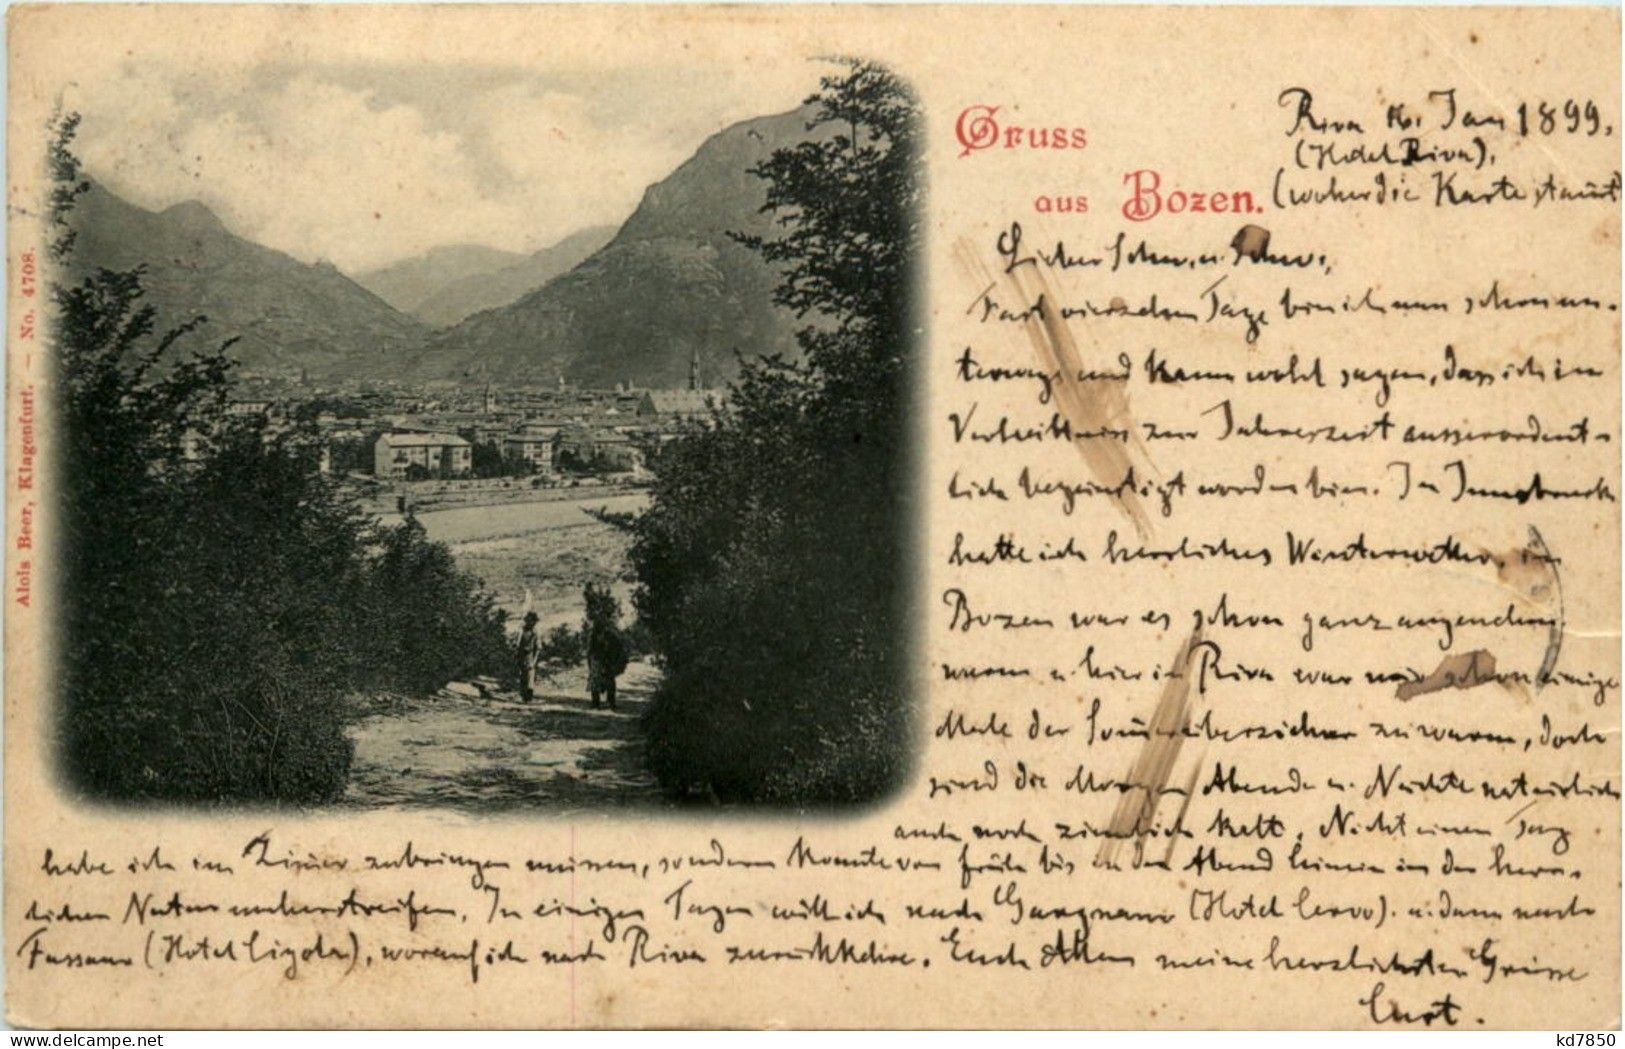 Gruss
aus Bozen.
Alois Beer, Klagenfurt. – No. 4708.
Riva 16. Jan 1899.
(Hotel Riva).
(woher die Karte stamt
Lieber Schw. u. Schw.,
Fast vierzehn Tage bin ich nun schon un-
terwegs und kann wohl sagen, dass ich im
Verhältniss zur Jahreszeit ausserordent-
lich begünstigt worden bin. In Innsbruck
hatte ich herrliches Winterwetter, in
Bozen war es schon ganz angenehm
warm u. hier in Riva war mir schon einige
Male der Som̅erüberzieher zu warm, doch
sind die Morgen Abende u. Nächte natürlich
auch noch ziemlich kalt. Nicht einen Tag
habe ich im Zim̅er zubringen müssen, sondern konnte von früh bis in den Abend hinein in der herr-
lichen Natur umherstreifen. In einigen Tagen will ich nach Gargnano (Hotel Cervo). u. dann nach
Fassano (Hotel Gigola), worauf ich nach Riva zurückkehre. Euch Allen meine herzlichsten Grüsse
Curt.
kd7850